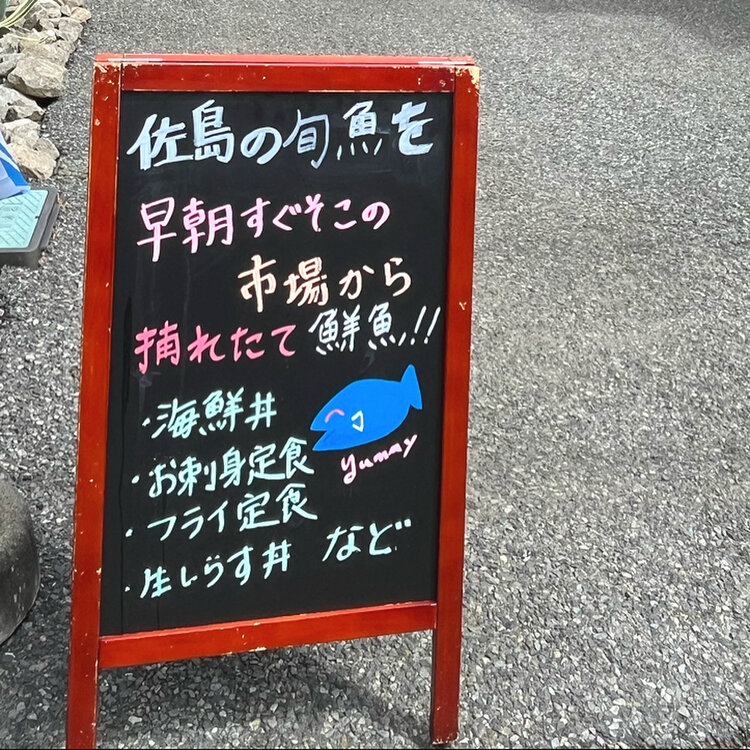 佐島の旬魚を
早朝すぐそこの
市場から
捕れたて鮮魚!!
・海鮮丼
・お刺身定食
・フライ定食
・生しらす丼 など
yumay